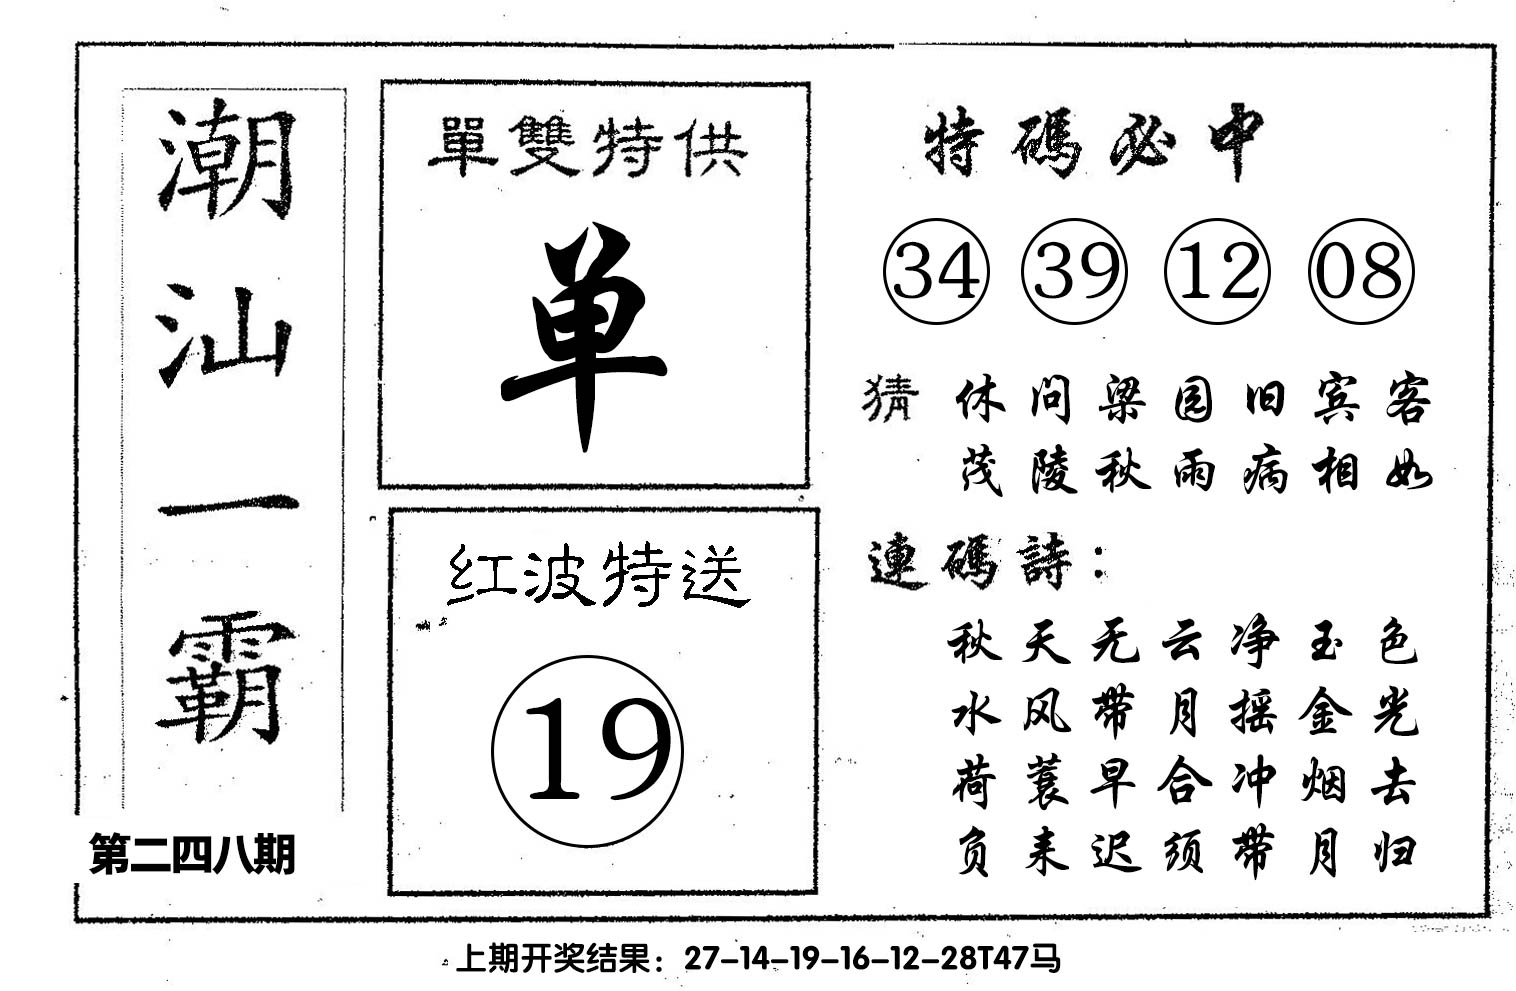 潮汕一霸
第二四八期
單雙特供
单
红波特送
19
特碼必中
34 39 12 08
猜 休问梁园旧宾客
茂陵秋雨病相如
連碼詩：
秋天无云净玉色
水风带月摇金光
荷蓑早合冲烟去
负来迟须带月归
上期开奖结果：27-14-19-16-12-28T47马